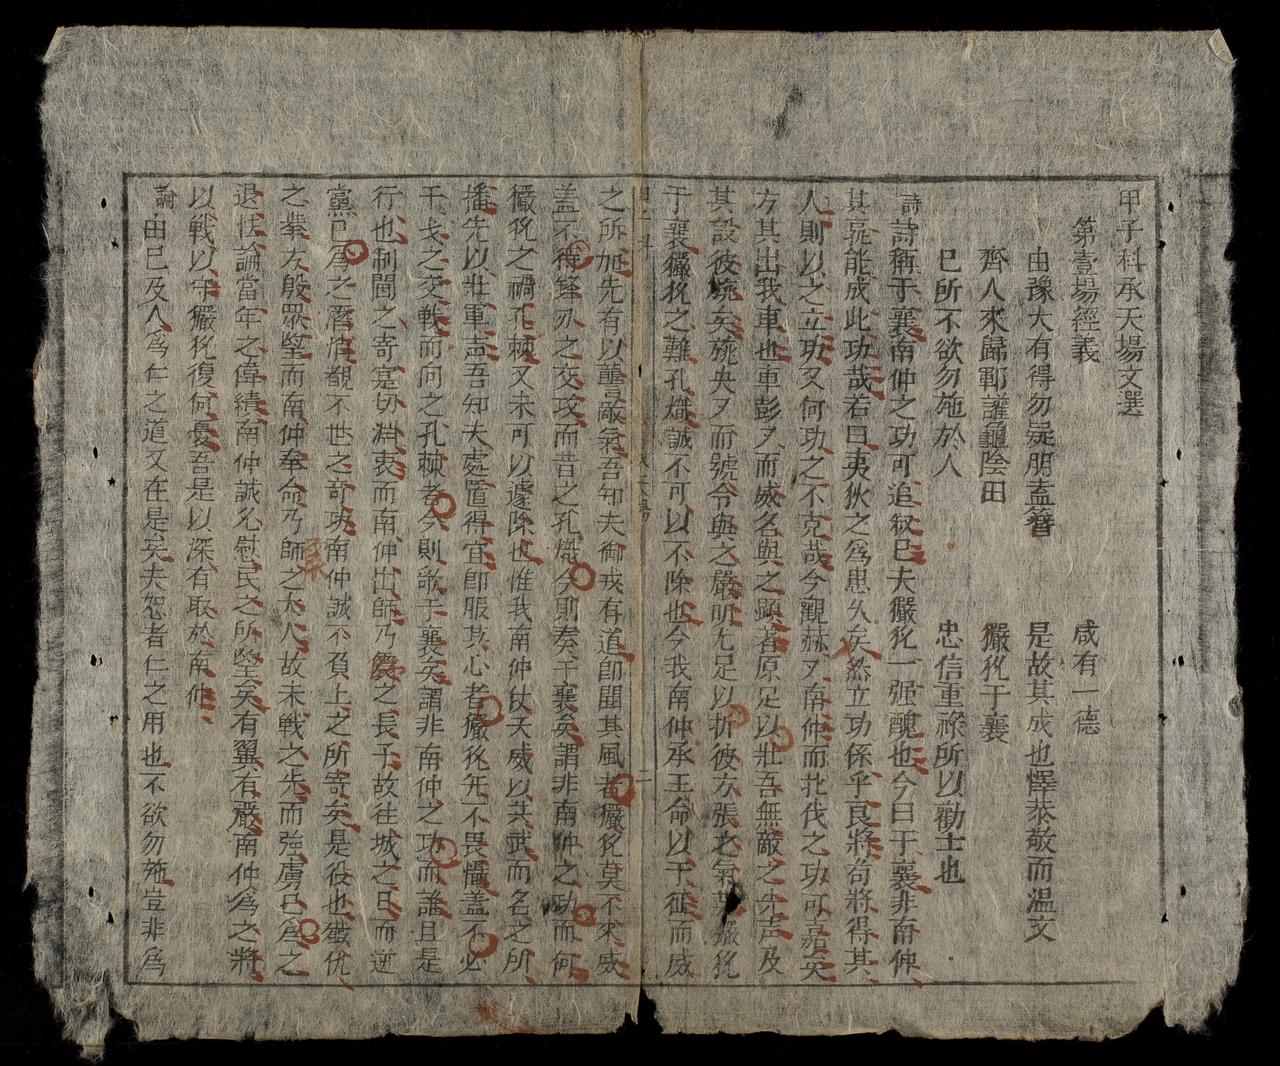 甲子科承天場文選
第壹場經義
咸有一德
由豫大有得勿疑朋盍簪
是故其成也懌恭敬而溫文
齊人來歸鄆讙龜陰田
玁狁于襄
己所不欲勿施於人
忠信重祿所以勸士也
詩 詩稱于襄南仲之功可追叙已夫玁狁一强醜也今曰于襄非南仲
其誰能成此功哉若曰夷狄之爲患久矣然立功係乎良將苟將得其
人則以之立功又何功之不克哉今觀赫又南仲而北伐之功可嘉矣
方其出我車也車彭又而威名與之顕者原足以壯吾無敵之先声及
其設彼旐矣旐央又而號令與之嚴明尤足以折彼方張之氣玁狁
于襄玁狁之難孔熾誠不可以不除也今我南仲承王命以于征而威
之所加先有以讋敵氣吾知夫御戎有道卽聞其風者玁狁莫不來威
盖不待鋒刃之交攻而昔之孔熾今則奏于襄矣謂非南仲之功而何
玁狁之禍孔棘又未可以遽除也惟我南仲仗天威以共武而名之所
播先以壯軍声吾知夫處置得宜卽脹其心者玁狁先不畏懼盖不必
干戈之交戰而向之孔棘者今則歌于襄矣謂非南仲之功而誰且是
行也制閫之寄寔切淵衷而南仲出師乃爲之長子故往城之日而逆
黨已爲之潛消覩不世之奇功南仲誠不負上之所寄矣是役也蛮优
之辜方殷眾望而南仲奉命乃師之大人故未戰之先而強虜已爲之
退怯論當年之偉績南仲誠允慰民之所望矣有翼有嚴南仲爲之將
以戰以守玁狁復何憂吾是以深有取於南仲
論 由已及人爲仁之道又在是矣夫恕者仁之用也不欲勿施豈非爲